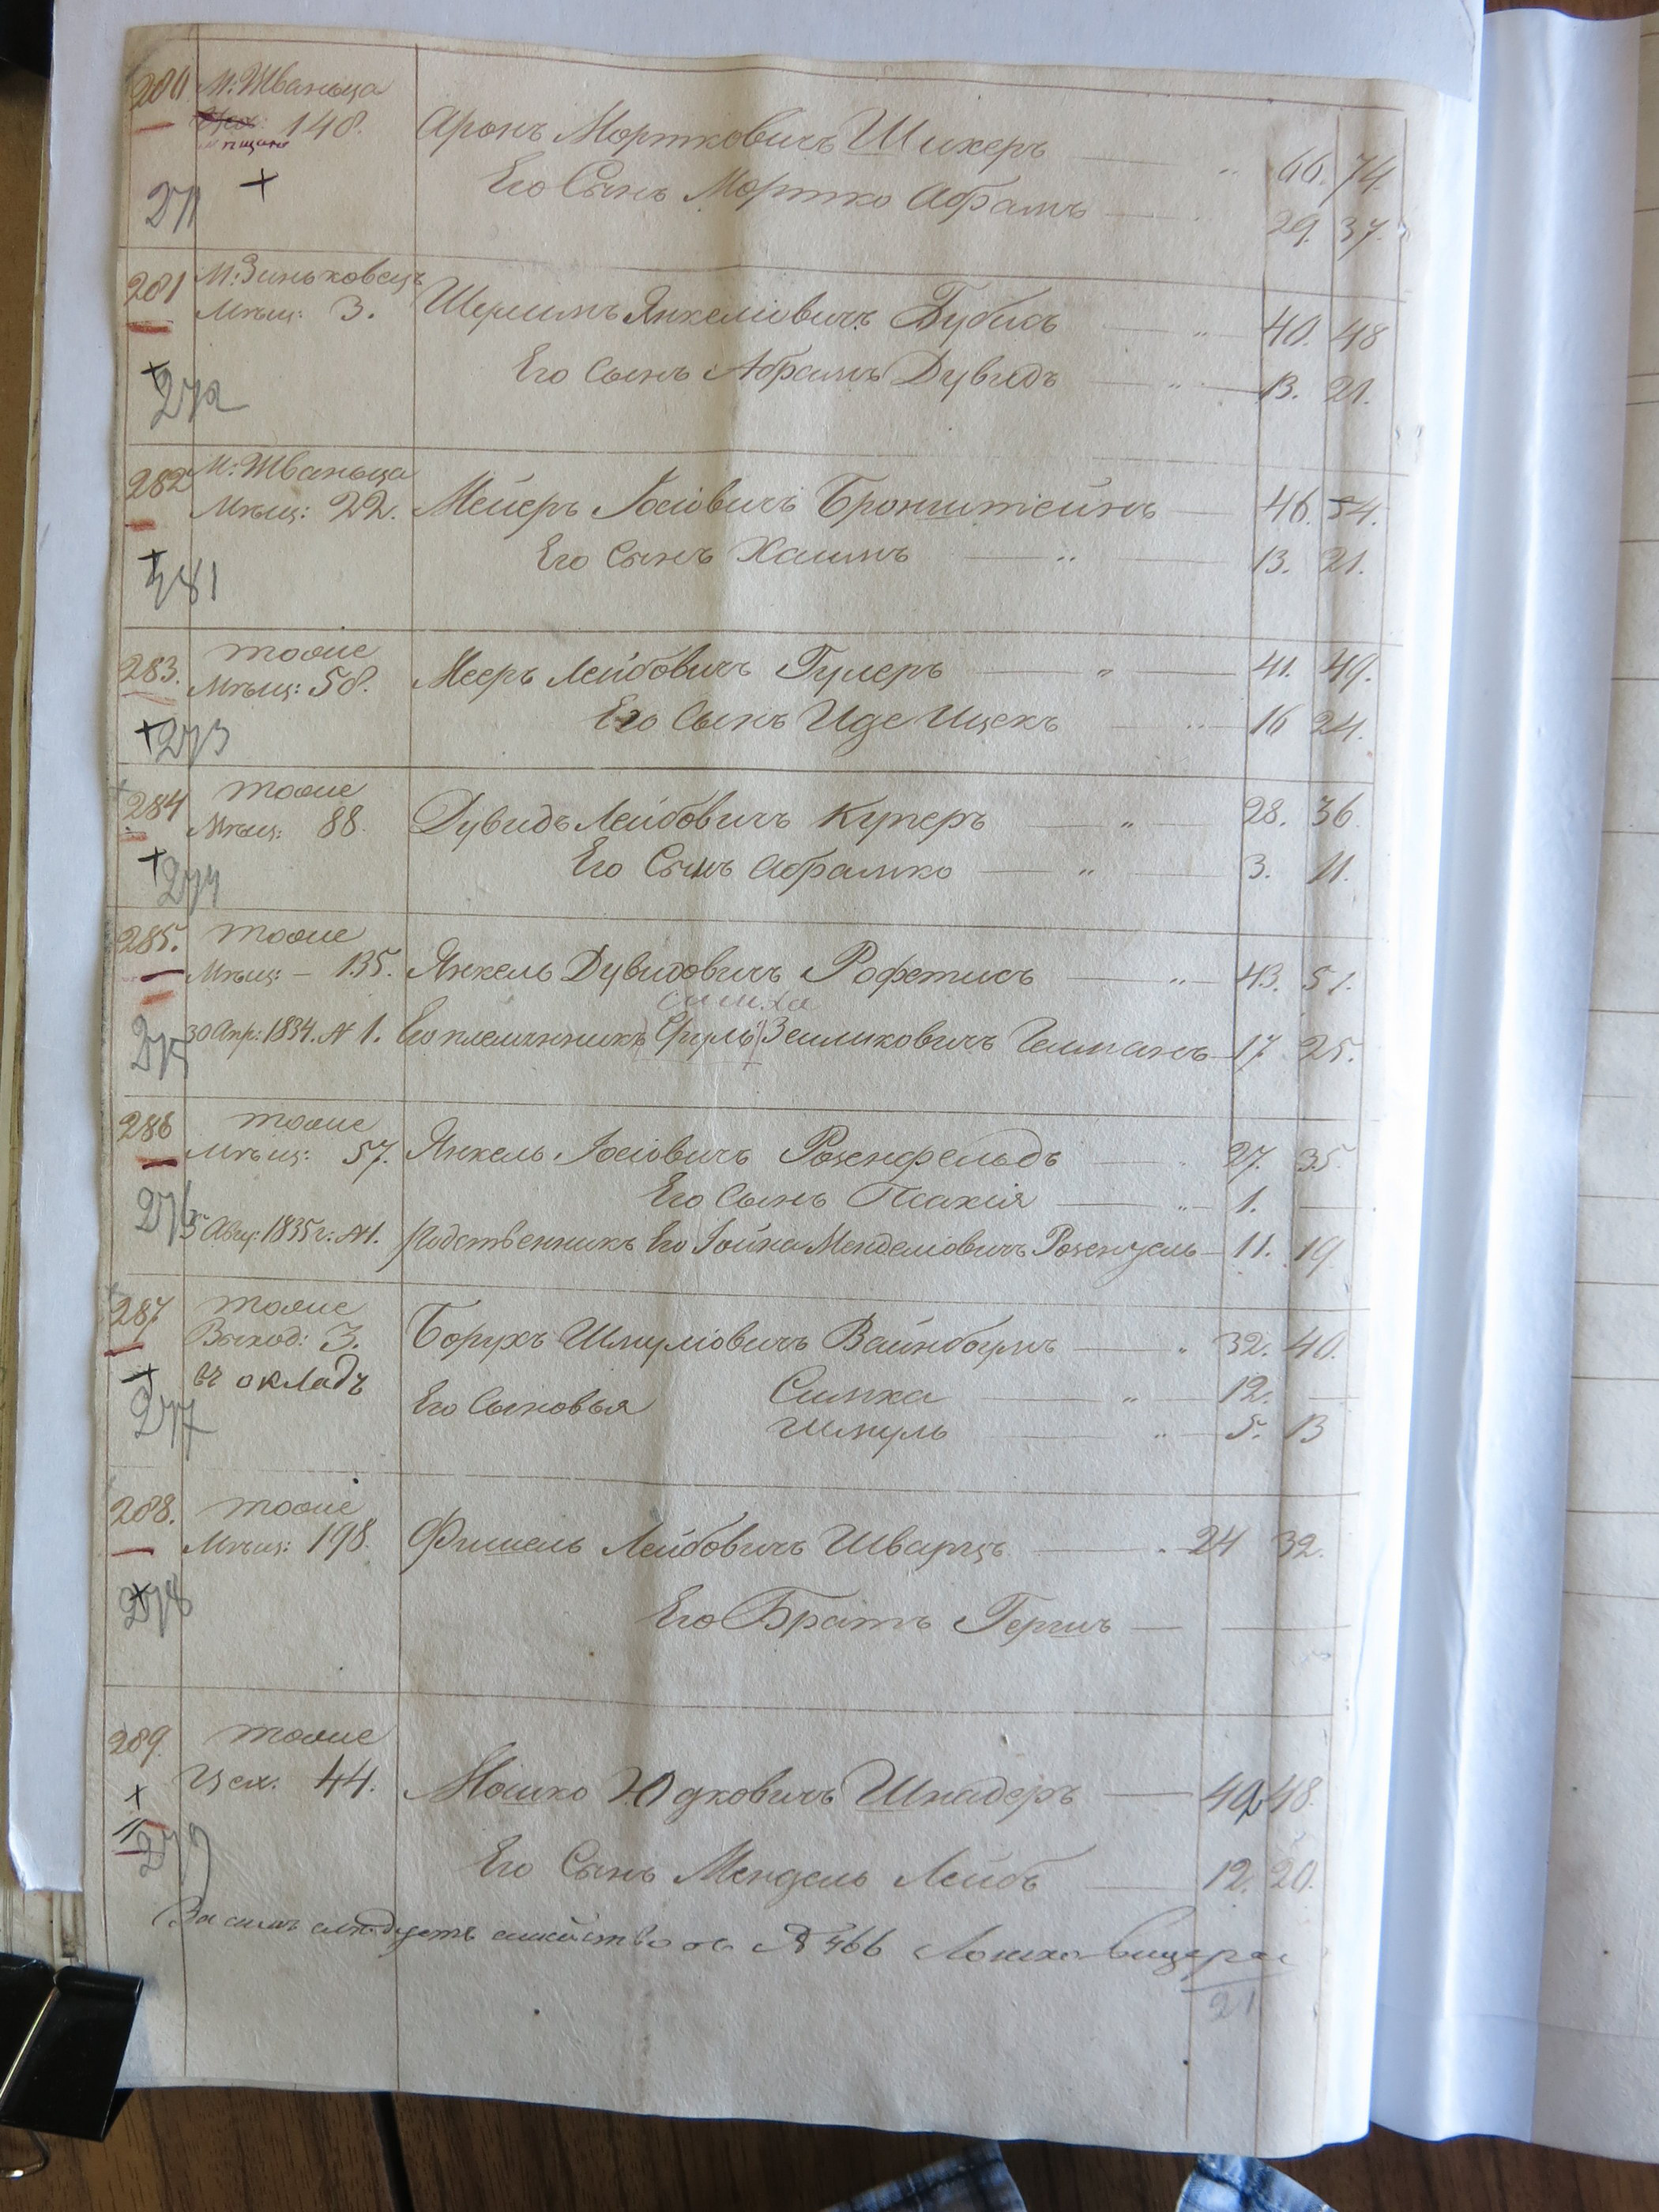 280. М: Жванца
Цех: 148.
мѣщане
Аронъ Мортковичъ Шихеръ — " 66. 74.
Его Сынъ Мортко Абрамъ — 29. 37.
271 +
281 М: Зиньковецъ
Мѣщ: 3. Шулимъ Янкеліовичъ Бубисъ — " — 40. 48
Его Сынъ Абрамъ Дувидъ — " — 13. 21.
+ 272
282 М: Жванца
Мѣщ: 22. Мейеръ Іосіовичъ Бронштейнъ — 46. 54.
Его Сынъ Хаимъ — " — 13. 21.
+ 281
283. тоже
Мѣщ: 58. Мееръ Лейбовичъ Гулеръ — " — 41. 49.
Его Сынъ Иде Ицекъ — " — 16 24.
+ 273
284 тоже
Мѣщ: 88. Дувидъ Лейбовичъ Куперъ — " — 28. 36.
Его Сынъ Абрамко — " — 3. 11.
+ 274
285. тоже
Мѣщ: — 135. Янкель Дувидовичъ Рофетисъ — " — 43. 51.
симха
30 Апр: 1834. N 1. Его племянникъ Сруль Зеликовичъ — 17. 25.
275
286 тоже
Мѣщ: 57. Янкель Іосіовичъ Розенфельдъ — 27. 35.
Его Сынъ Псахія — " — 1. —
276 5 Авгу: 1835 г: N 1. Родственникъ Его Іойна Менделіовичъ — 11. 19
287 тоже
Выход: 3. Борухъ Шмуліовичъ Вайнбаумъ — " 32. 40.
+ въ окладъ
Его Сыновья Симха — " — 12. —
Шмуль — " — 5. 13
277
288. тоже
Мѣщ: 198. Фишель Лейбовичъ Шварцъ — 24 32.
+ 278
Его Братъ Гершъ — —
289. тоже
Цех: 44. Мошко Юдковичъ Шнайдеръ — 40 48.
+
279
Его Сынъ Мендель Лейбъ — 12. 20.
За симъ слѣдуетъ семейство N 466
21